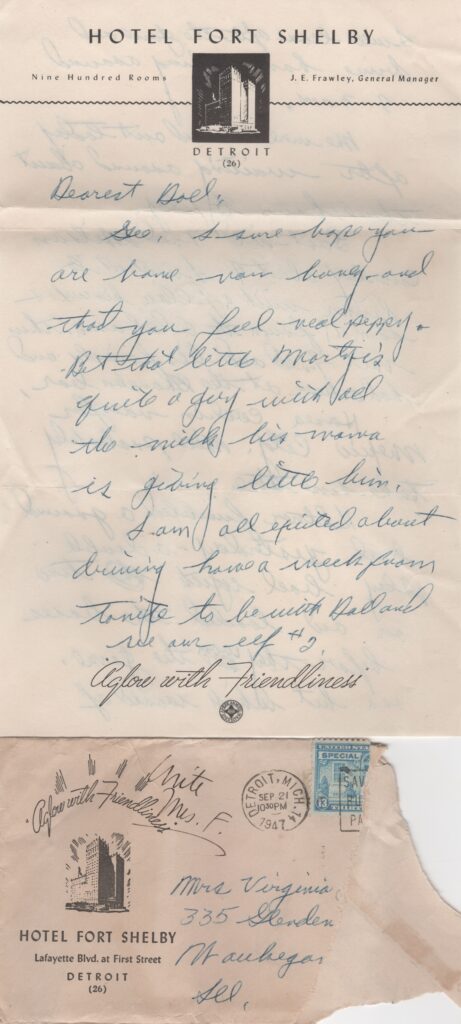 HOTEL FORT SHELBY
Nine Hundred Rooms
J. E. Frawley, General Manager
DETROIT
(26)
Dearest Doll,
Gee, I sure hope you
are home now honey and
that you feel real peppy.
But that little Marty is
quite a guy with all
the milk his mama
is giving little him.
I am all excited about
driving home a week from
tonite to be with Doll and
see our elf #2.
"Aglow with Friendliness"
"Aglow with Friendliness"
Write
Mrs. F.
DETROIT, MICH. 14
SEP 21
10 30 PM
1947
SPECIAL
13
SAV
PA
HOTEL FORT SHELBY
Lafayette Blvd. at First Street
DETROIT
(26)
Mrs Virginia
335
Waukegan
Ill.